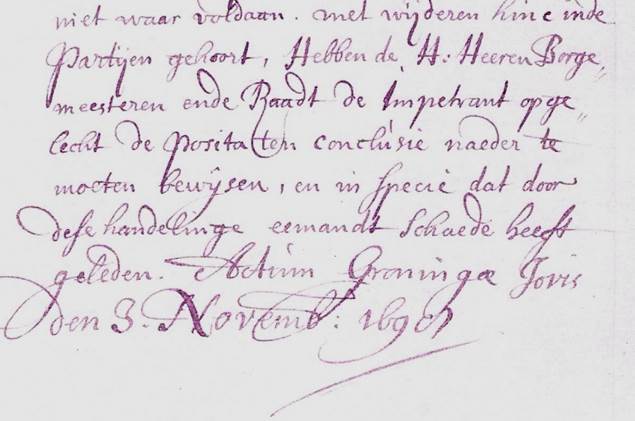 niet waar voldaan. met wijderen hinc inde
Partijen gehoort, Hebben de H: Heeren Borge„
meesteren ende Raadt de Impetrant opge„
lecht de Posita ten conclusie naeder te
moeten bewijsen, en in specie dat door
dese handelinge eemandt schaede heeft
geleden. Actum Groningæ Jovis
den 3. Novemb: